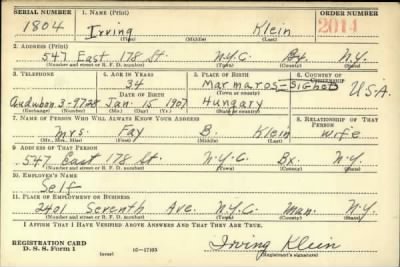 SERIAL NUMBER 1. NAME (Print) ORDER NUMBER
1804 Irving Klein 2014
(First) (Middle) (Last)
2. ADDRESS (Print)
547 East 178 St. N.Y.C. Bx. N.Y.
(Number and street or R. F. D. number) (Town) (County) (State)
3. TELEPHONE 4. AGE IN YEARS 5. PLACE OF BIRTH 6. COUNTRY OF CITIZENSHIP
34 Marmaros-Sighet
DATE OF BIRTH (Town or county) U.S.A.
Audubon 3-9728 Jan. 15 1907 Hungary
(Exchange) (Number) (Mo.) (Day) (Yr.) (State or country)
7. NAME OF PERSON WHO WILL ALWAYS KNOW YOUR ADDRESS 8. RELATIONSHIP OF THAT PERSON
Mrs. Fay B. Klein wife
(Mr., Mrs., Miss) (First) (Middle) (Last)
9. ADDRESS OF THAT PERSON
547 East 178 St. N.Y.C. Bx. N.Y.
(Number and street or R. F. D. number) (Town) (County) (State)
10. EMPLOYER'S NAME
Self
11. PLACE OF EMPLOYMENT OR BUSINESS
2401 Seventh Ave. N.Y.C. Man. N.Y.
(Number and street or R. F. D. number) (Town) (County) (State)
I AFFIRM THAT I HAVE VERIFIED ABOVE ANSWERS AND THAT THEY ARE TRUE.
REGISTRATION CARD
D. S. S. Form 1 (over) 16—17105 Irving Klein
(Registrant's signature)